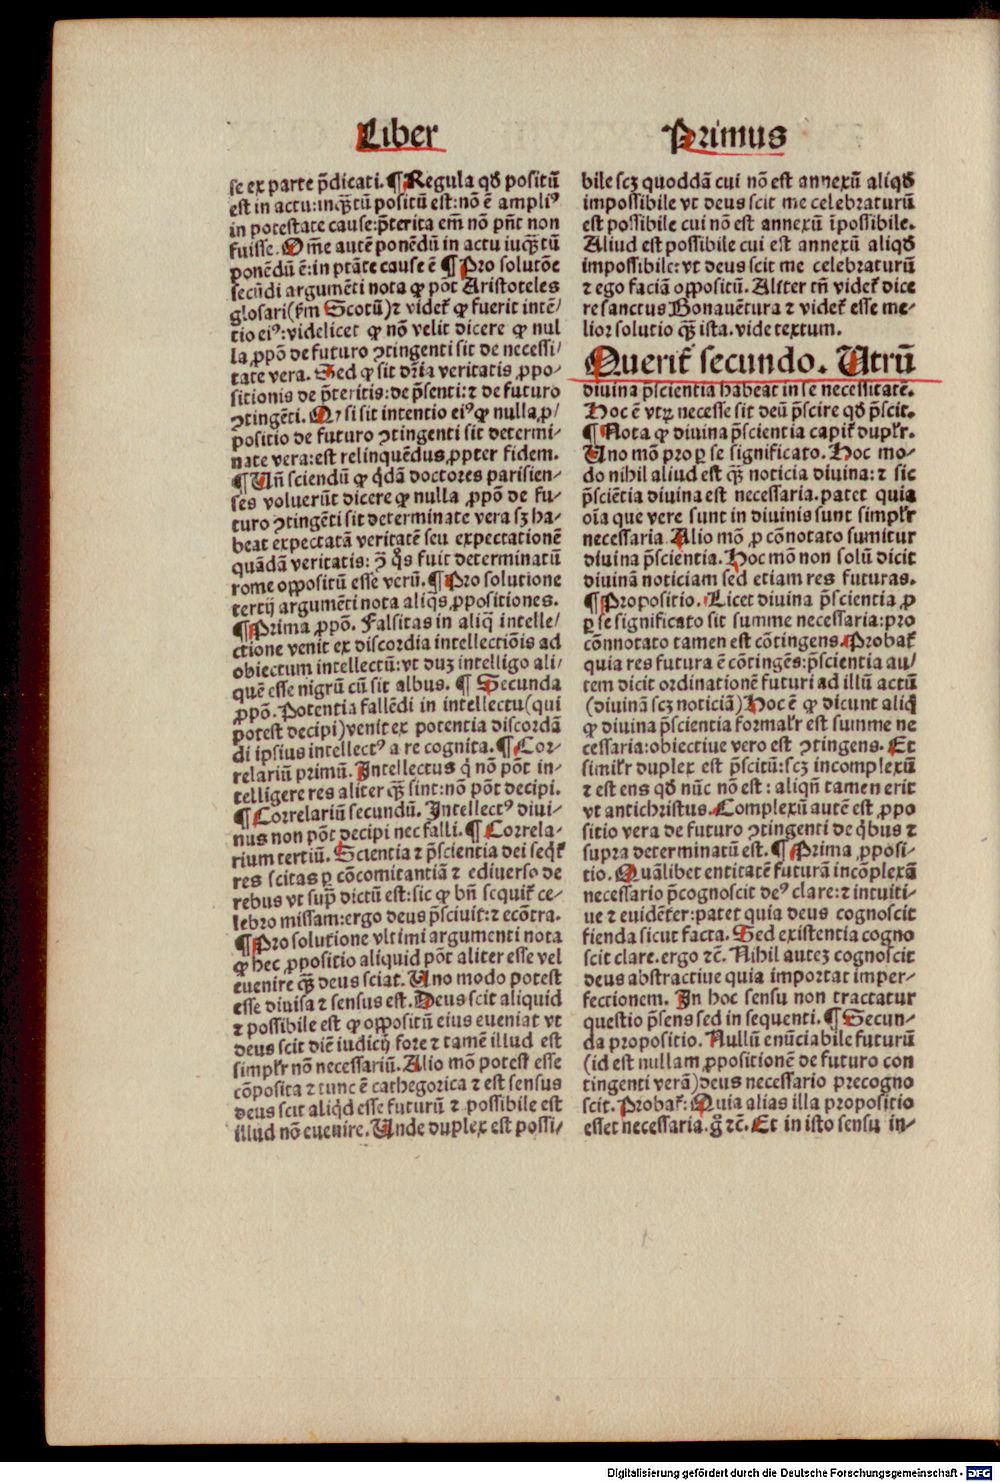 Liber
Primus
se ex parte p̄dicati. ¶ Regula qđ positū
est in actu: inqȝtū positū est: nō ē ampliꝰ
in potestate cause: p̄terita em̄ nō pn̄t non
fuisse. Om̄e autē ponēdū in actu inqȝtū
ponēdū ē: in ptāte cause ē ¶ Pro solutōe
secūdi argumēti nota ꝙ pōt Aristoteles
glosari (ẜm Scotū) ⁊ videt̄ ꝙ fuerit intē/
tio eiꝰ: videlicet ꝙ nō velit dicere ꝙ nul
la ꝓpō de futuro ꝯtingenti sit de necessi/
tate vera. Sed ꝙ sit dr̄ia veritatis ꝓpo/
sitionis de p̄teritis: de p̄senti: ⁊ de futuro
ꝯtingēti. Qꝛ si sit intentio eiꝰ ꝙ nulla ꝓ/
positio de futuro ꝯtingenti sit determi-
nate vera: est relinquēdus ꝓpter fidem.
¶ Un̄ sciendū ꝙ q̇dā doctores parisien-
ses voluerūt dicere ꝙ nulla ꝓpō de fu-
turo ꝯtingēti sit determinate vera sȝ ha-
beat expectatā veritatē seu expectationē
quādā veritatis: ꝯ̄ q̊s fuit determinatū
rome oppositū esse verū. ¶ Pro solutione
tertij argumēti nota aliq̄s ꝓpositiones.
¶ Prima ꝓpō. Falsitas in aliq̇ intelle/
ctione venit ex discordia intellectiōis ad
obiectum intellectū: vt duȝ intelligo ali/
quē esse nigrū cū sit albus. ¶ Secunda
ꝓpō. Potentia fallēdi in intellectu (qui
potest decipi) venit ex potentia discordā
di ipsius intellectꝰ a re cognita. ¶ Cor-
relariū primū. Intellectus q̇ nō pōt in-
telligere res aliter qȝ sint: nō pōt decipi.
¶ Correlariū secundū. Intellectꝰ diui-
nus non pōt decipi nec falli. ¶ Correla-
rium tertiū. Scientia ⁊ p̄scientia dei seq̄t̄
res scitas ꝑ cōcomitantiā ⁊ ediuerso de
rebus vt supͣ dictū est: sic ꝙ bn̄ sequit̄ ce-
lebro missam: ergo deus p̄sciuit: ⁊ ecōtra.
¶ Pro solutione vltimi argumenti nota
ꝙ hec ꝓpositio aliquid pōt aliter esse vel
euenire qȝ deus sciat. Uno modo potest
esse diuisa ⁊ sensus est. Deus scit aliquid
⁊ possibile est ꝙ oppositū eius eueniat vt
deus scit diē iudicij fore ⁊ tamē illud est
simpl̄r nō necessariū. Alio mō potest esse
cōposita ⁊ tunc ē cathegorica ⁊ est sensus
deus scit aliq̇d esse futurū ⁊ possibile est
illud nō euenire. Unde duplex est possi/
bile scȝ quoddā cui nō est annexū aliqđ
impossibile vt deus scit me celebraturū
est possibile cui nō est annexū īpossibile.
Aliud est possibile cui est annexū aliqđ
impossibile: vt deus scit me celebraturū
⁊ ego faciā oppositū. Aliter tn̄ videt̄ dice
re sanctus Bonauētura ⁊ videt̄ esse me-
lior solutio qȝ ista. vide textum.
Querit̄ secundo. Utrū
diuina p̄scientia habeat in se necessitatē.
Hoc ē vtꝝ necesse sit deū p̄scire qđ p̄scit.
¶ Nota ꝙ diuina p̄scientia capit̄ dupl̄r.
Uno mō pro ꝑ se significato. Hoc mo-
do nihil aliud est qȝ noticia diuina: ⁊ sic
p̄sciētia diuina est necessaria. patet quia
oīa que vere sunt in diuinis sunt simpl̄r
necessaria Alio mō ꝓ cōnotato sumitur
diuina p̄scientia. Hoc mō non solū dicit
diuinā noticiam sed etiam res futuras.
¶ Propositio. Licet diuina p̄scientia ꝓ
ꝑ se significato sit summe necessaria: pro
cōnotato tamen est cōtingens. Probat̄
quia res futura ē cōtingēs: p̄scientia au/
tem dicit ordinationē futuri ad illū actū
(diuinā scȝ noticiā) Hoc ē ꝙ dicunt aliq̇
ꝙ diuina p̄scientia formal̄r est summe ne
cessaria: obiectiue vero est ꝯtingens. Et
simil̄r duplex est p̄scitū: scȝ incomplexū
⁊ est ens qđ nūc nō est: aliqn̄ tamen erit
vt antichristus. Complexū autē est ꝓpo
sitio vera de futuro ꝯtingenti de q̇bus ⁊
supra determinatū est. ¶ Prima ꝓposi-
tio. Quālibet entitatē futurā incōplexā
necessario p̄cognoscit deꝰ clare: ⁊ intuiti-
ue ⁊ euidēter: patet quia deus cognoscit
fienda sicut facta. Sed existentia cogno
scit clare. ergo ⁊c̄. Nihil auteȝ cognoscit
deus abstractiue quia importat imper-
fectionem. In hoc sensu non tractatur
questio p̄sens sed in sequenti. ¶ Secun-
da propositio. Nullū enūciabile futurū
(id est nullam ꝓpositionē de futuro con
tingenti verā) deus necessario precogno
scit. Probat̄: Quia alias illa propositio
esset necessaria. g̊ ⁊c̄. Et in isto sensu in-
Digitalisierung gefördert durch die Deutsche Forschungsgemeinschaft - DFG